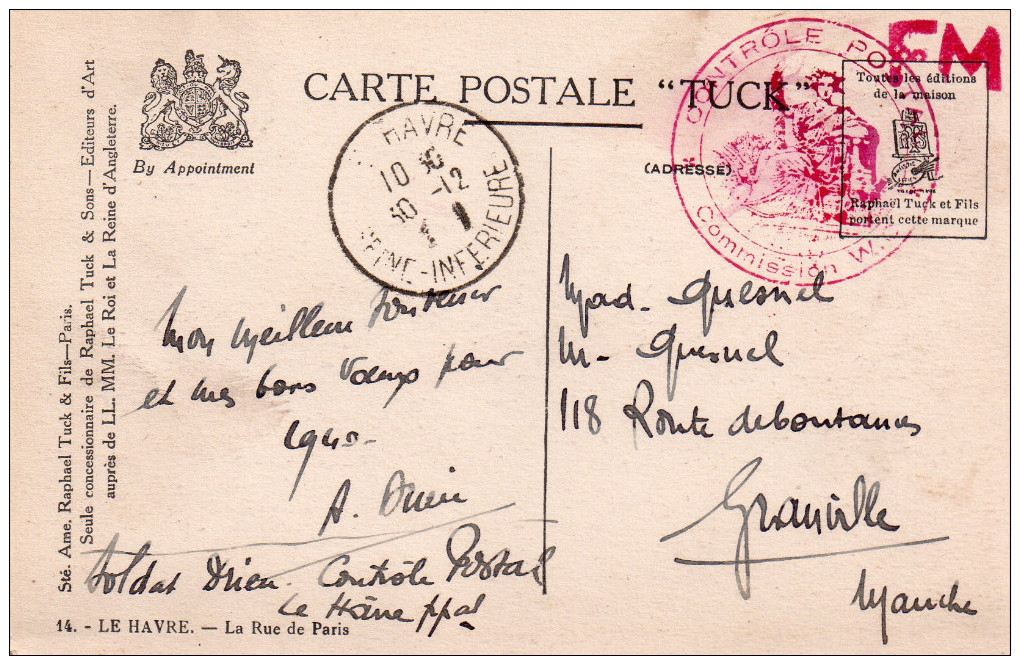 FM
CONTRÔLE POS
Commission W.
CARTE POSTALE "TUCK"
By Appointment
Toutes les éditions
de la maison
Raphaël Tuck et Fils
portent cette marque
(ADRESSE)
HAVRE
10 30
-12
40
SEINE-INFERIEURE
Sté. Ame. Raphael Tuck & Fils—Paris.
Seule concessionnaire de Raphael Tuck & Sons—Editeurs d'Art
auprès de LL. MM. Le Roi et La Reine d'Angleterre.
Mon meilleur souvenir
et mes bons vœux pour
1940-
A. Drieu
Soldat Drieu. Contrôle Postal
Le Hâvre ppal
Mad. Quesnel
M- Quesnel
118 Route de
Granville
Manche
14. - LE HAVRE. — La Rue de Paris